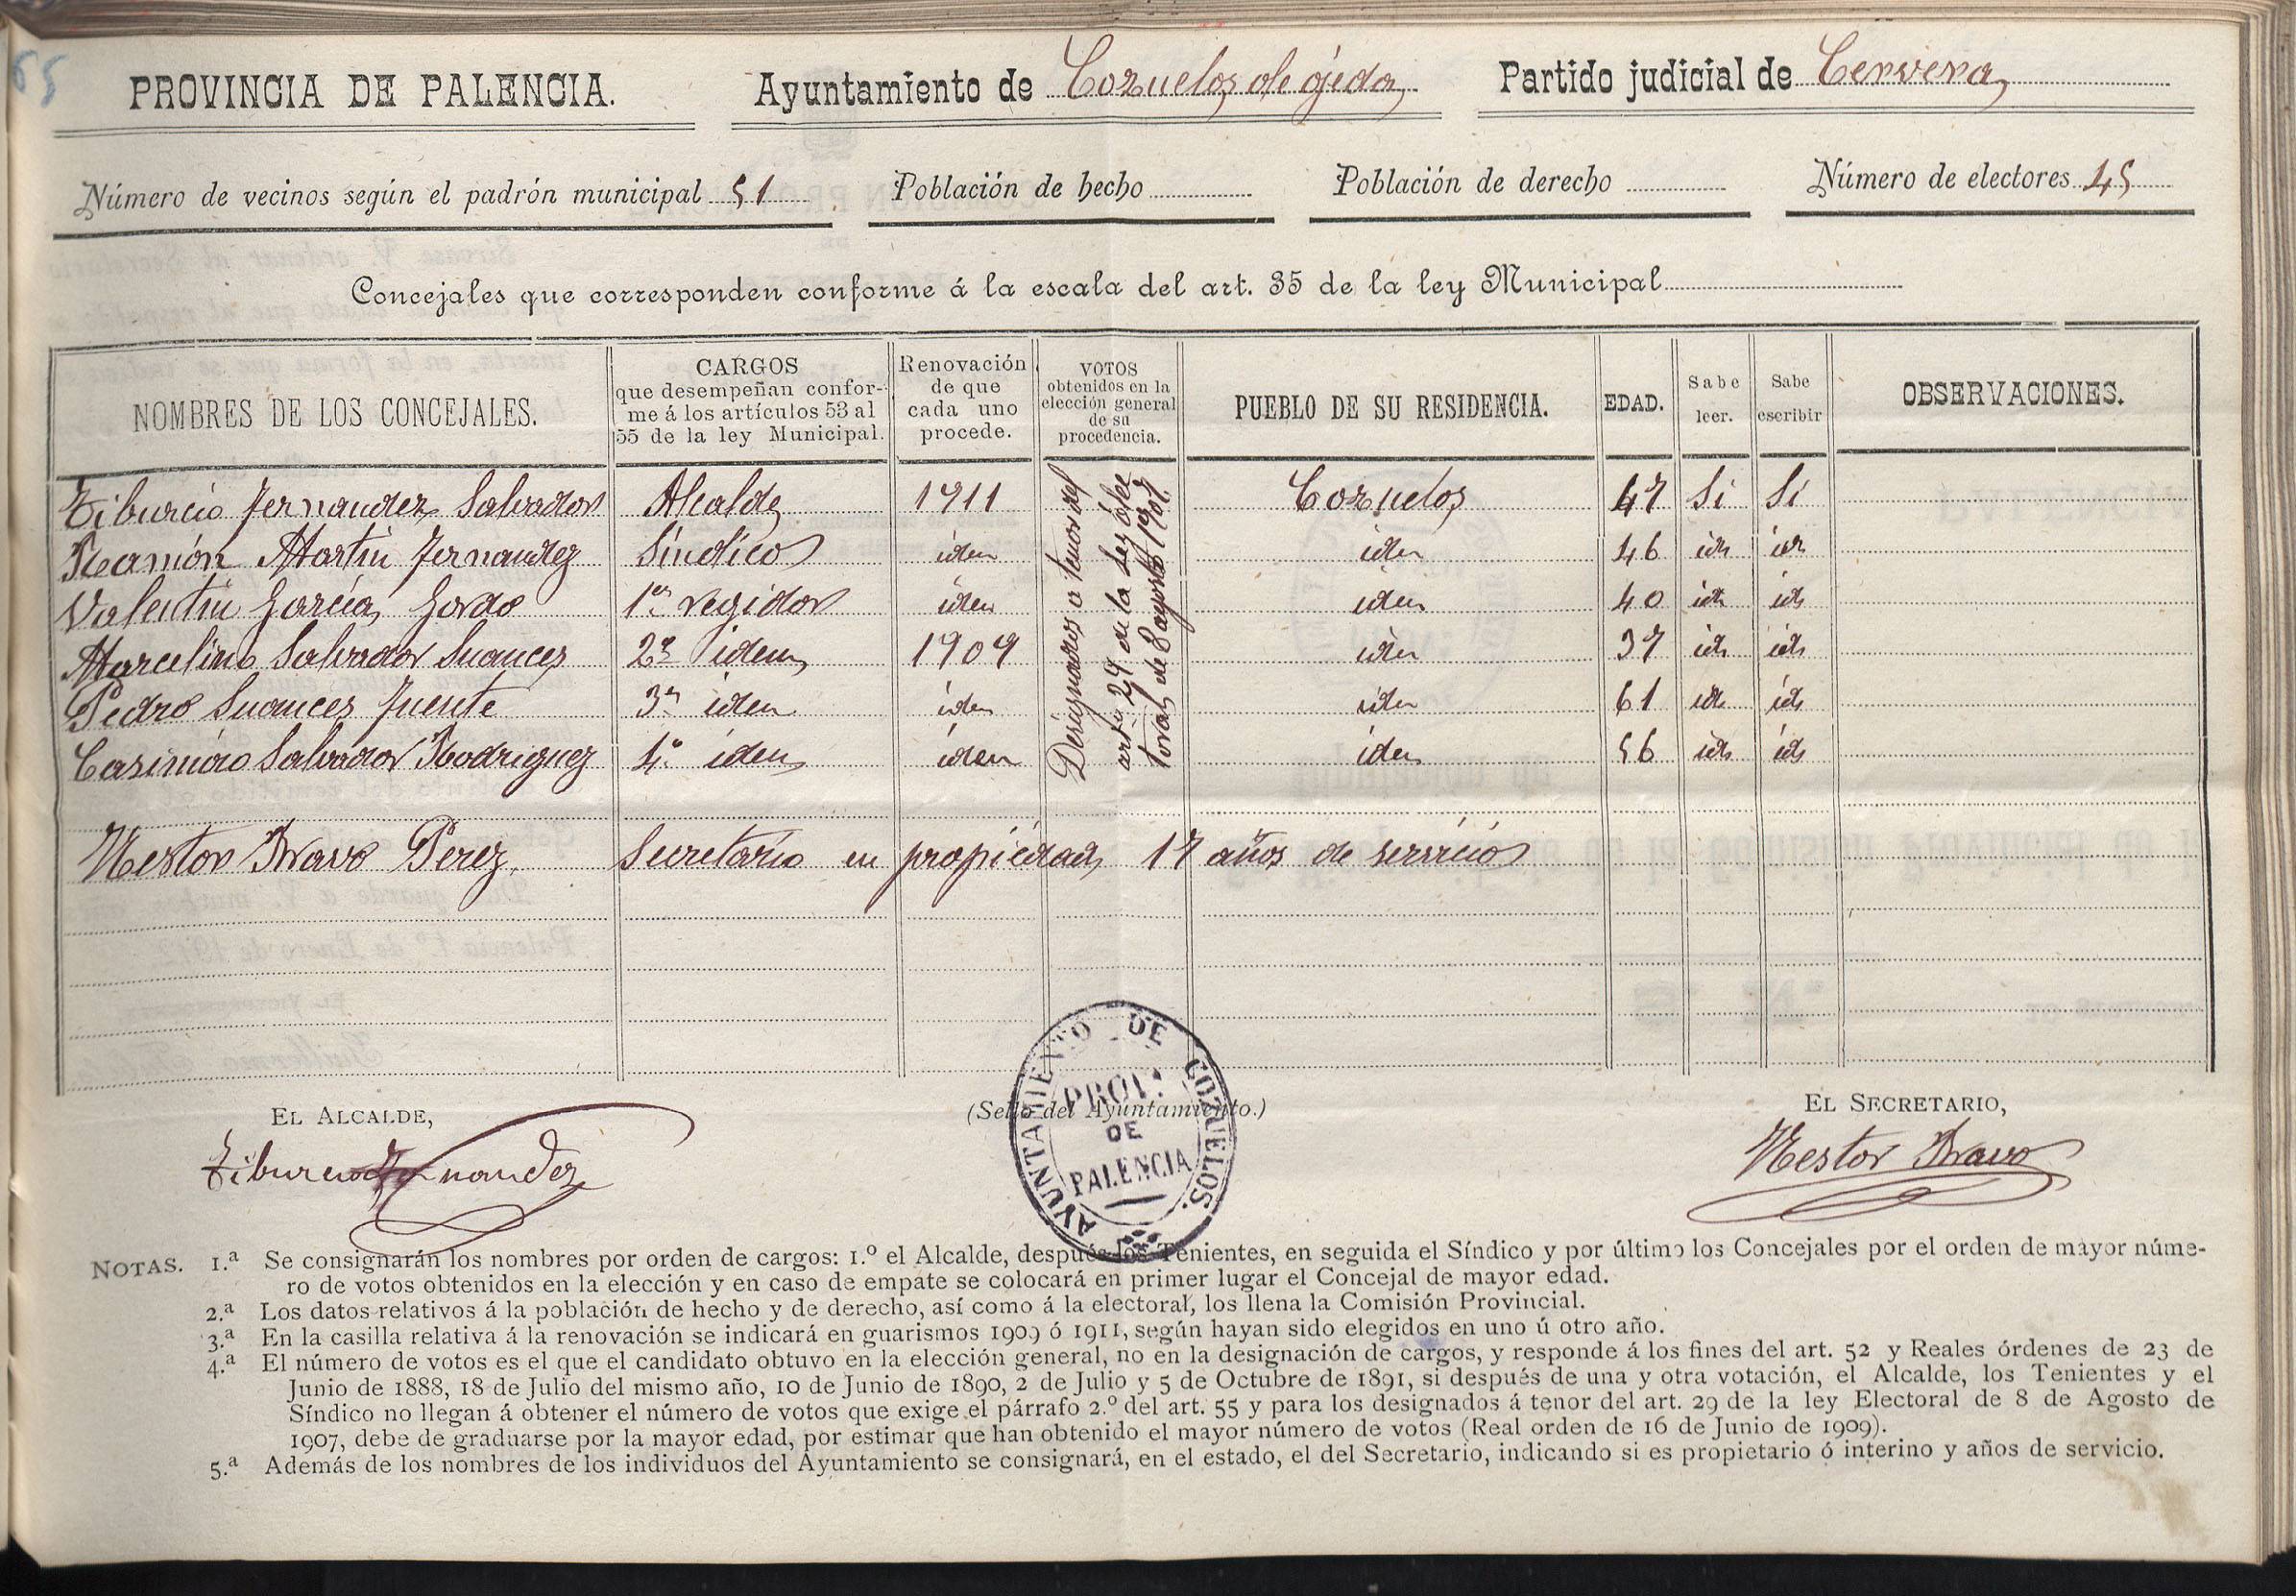 65
PROVINCIA DE PALENCIA. Ayuntamiento de Cozuelos de Ojeda Partido judicial de Cervera
Número de vecinos según el padrón municipal 51 Población de hecho Población de derecho Número de electores 45
Concejales que corresponden conforme á la escala del art. 35 de la ley Municipal
NOMBRES DE LOS CONCEJALES. CARGOS que desempeñan confor- me á los artículos 53 al 55 de la ley Municipal. Renovación de que cada uno procede. VOTOS obtenidos en la elección general de su procedencia. PUEBLO DE SU RESIDENCIA. EDAD. Sabe leer. Sabe escribir OBSERVACIONES.
Tiburcio Fernandez Salvador Alcalde 1911 Cozuelos 47 Si Si
Ramón Martin Fernandez Sindico iden iden 46 id id
Valentin Garcia Gordo 1er regidor iden iden 40 id id
Marcelino Salvador Suances 2º idem 1909 iden 37 id id
Pedro Suances Fuente 3er iden iden iden 61 id id
Casimiro Salvador Rodriguez 4º iden iden iden 56 id id
Designados a tenor del
artº 29 de la ley elec
toral de 8 agosto 1907
Nestor Bravo Perez, Secretario en propiedad, 17 años de servicio
EL ALCALDE, (Sello del Ayuntamiento.) EL SECRETARIO,
Tiburcio Fernandez Nestor Bravo
AYUNTAMIENTO DE COZUELOS.
PROV.ª
DE
PALENCIA
NOTAS. 1.ª Se consignarán los nombres por orden de cargos: 1.º el Alcalde, después los Tenientes, en seguida el Síndico y por último los Concejales por el orden de mayor núme-
ro de votos obtenidos en la elección y en caso de empate se colocará en primer lugar el Concejal de mayor edad.
2.ª Los datos relativos á la población de hecho y de derecho, así como á la electoral, los llena la Comisión Provincial.
3.ª En la casilla relativa á la renovación se indicará en guarismos 1909 ó 1911, según hayan sido elegidos en uno ú otro año.
4.ª El número de votos es el que el candidato obtuvo en la elección general, no en la designación de cargos, y responde á los fines del art. 52 y Reales órdenes de 23 de
Junio de 1888, 18 de Julio del mismo año, 10 de Junio de 1890, 2 de Julio y 5 de Octubre de 1891, si después de una y otra votación, el Alcalde, los Tenientes y el
Síndico no llegan á obtener el número de votos que exige el párrafo 2.º del art. 55 y para los designados á tenor del art. 29 de la ley Electoral de 8 de Agosto de
1907, debe de graduarse por la mayor edad, por estimar que han obtenido el mayor número de votos (Real orden de 16 de Junio de 1909).
5.ª Además de los nombres de los individuos del Ayuntamiento se consignará, en el estado, el del Secretario, indicando si es propietario ó interino y años de servicio.